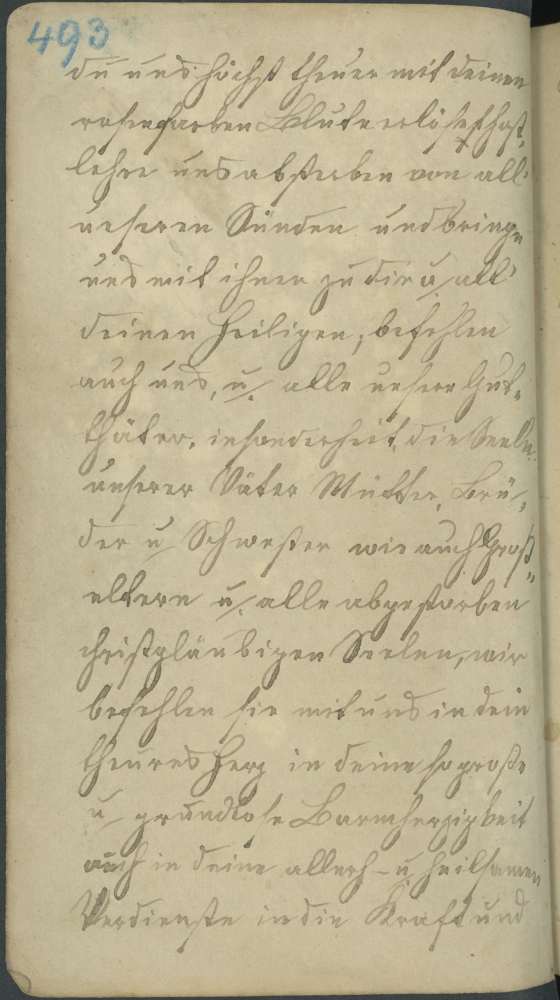 493
du uns höchst theuer mit deinen
rosenfarben Blute erlösest hast,
lehre uns absterben von all'
unseren Sünden und bringe
uns mit ihnen zu dir u. all'
deinen Heiligen; befehlen
auch uns, u. alle unsere Gut-
thäter, insonderheit, die Seeln
unserer Väter Mütter, Brü-
der u Schwester wie auch Groß-
eltern u. alle abgestorben
christgläubigen Seelen, wir
befehlen sie mit uns in dein
theures Herz in deine so große
u grundlose Barmherzigkeit
auch in deine allerh- u. heilsamen
Verdienste in die Kraft und